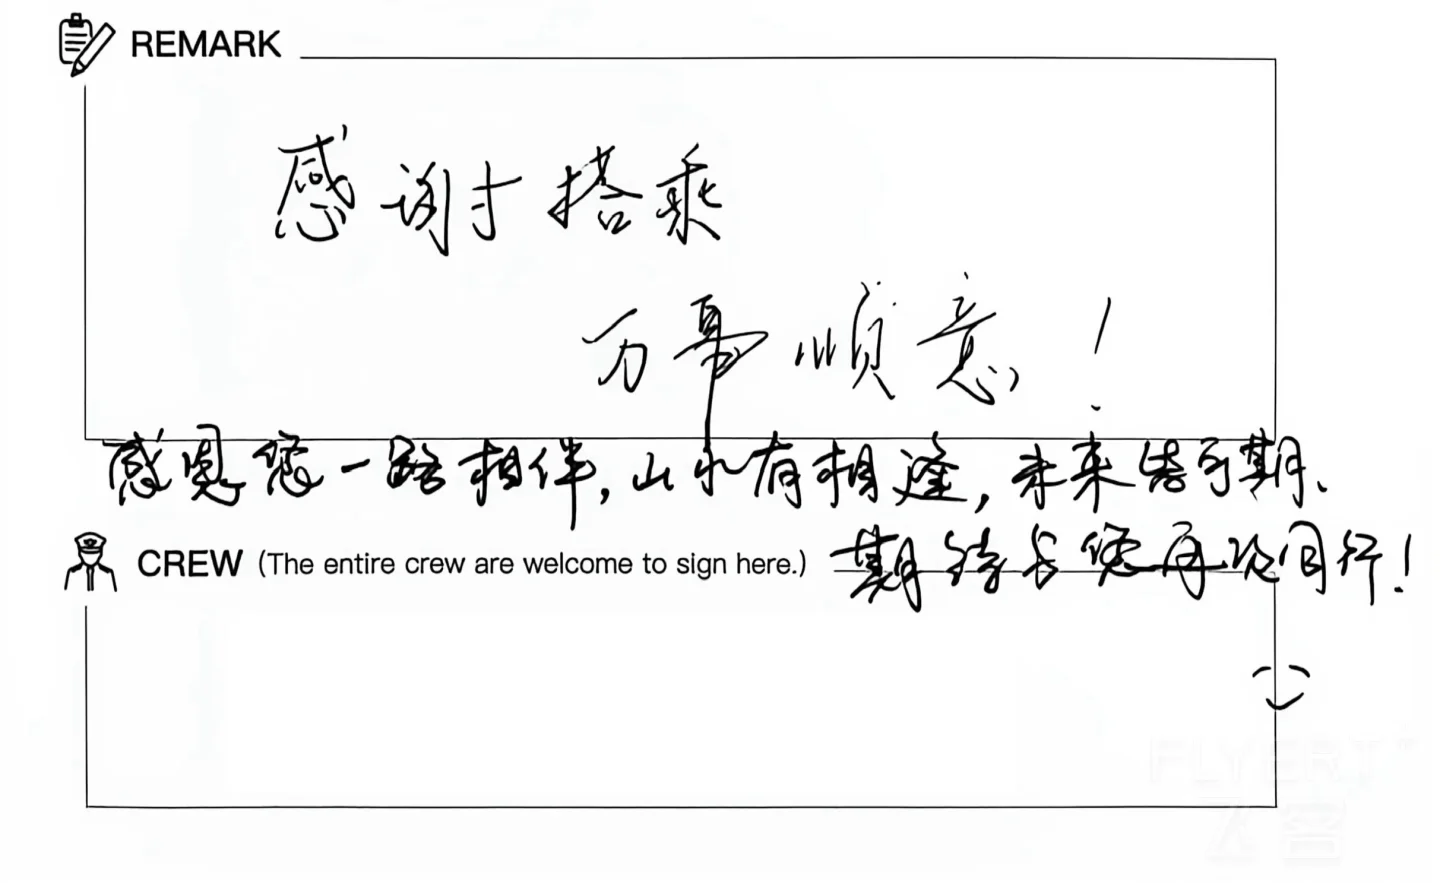 REMARK
感谢搭乘
万事顺意！
感恩您一路相伴,山水有相逢,未来皆可期、
CREW (The entire crew are welcome to sign here.)
期待与您再次同行！
FLYERT
飞客